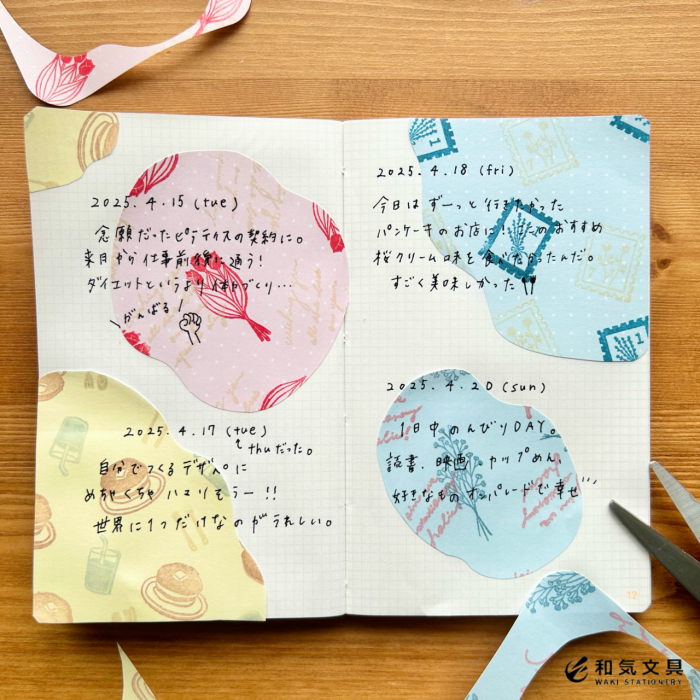 2025.4.15(tue)
念願だったピラティスの契約に。
来月から仕事前後に通う!
ダイエットというより体づくり…
がんばる
2025.4.17(tue)
thuだった。
自分でつくるデザペに
めちゃくちゃハマりそうー!!
世界に1つだけなのがうれしい。
2025.4.18(fri)
今日はずーっと行きたかった
パンケーキのお店に!
のおすすめ
桜クリーム味を食べた
んだ。
すごく美味しかった
2025.4.20(sun)
1日中のんびりDAY。
読書、映画、カップめん、
好きなものオンパレードで幸せ
12
和気文具
WAKI STATIONERY